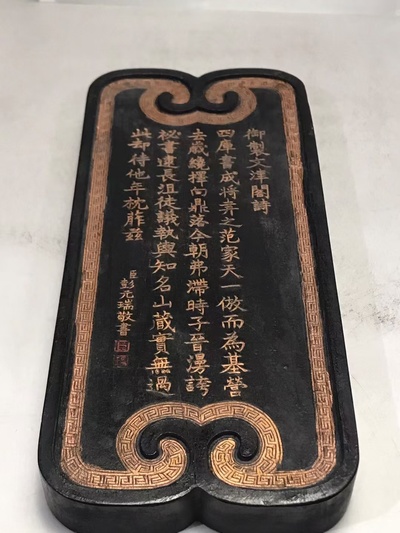 御製文津閣詩
四庫書成將弆之范家天一倣而為基營
去歲纔擇向鼎落今朝弗滯時子晉漫誇
秘書逮長沮徒議教與知名山藏實無過
此却待他年枕胙茲
臣彭元瑞敬書